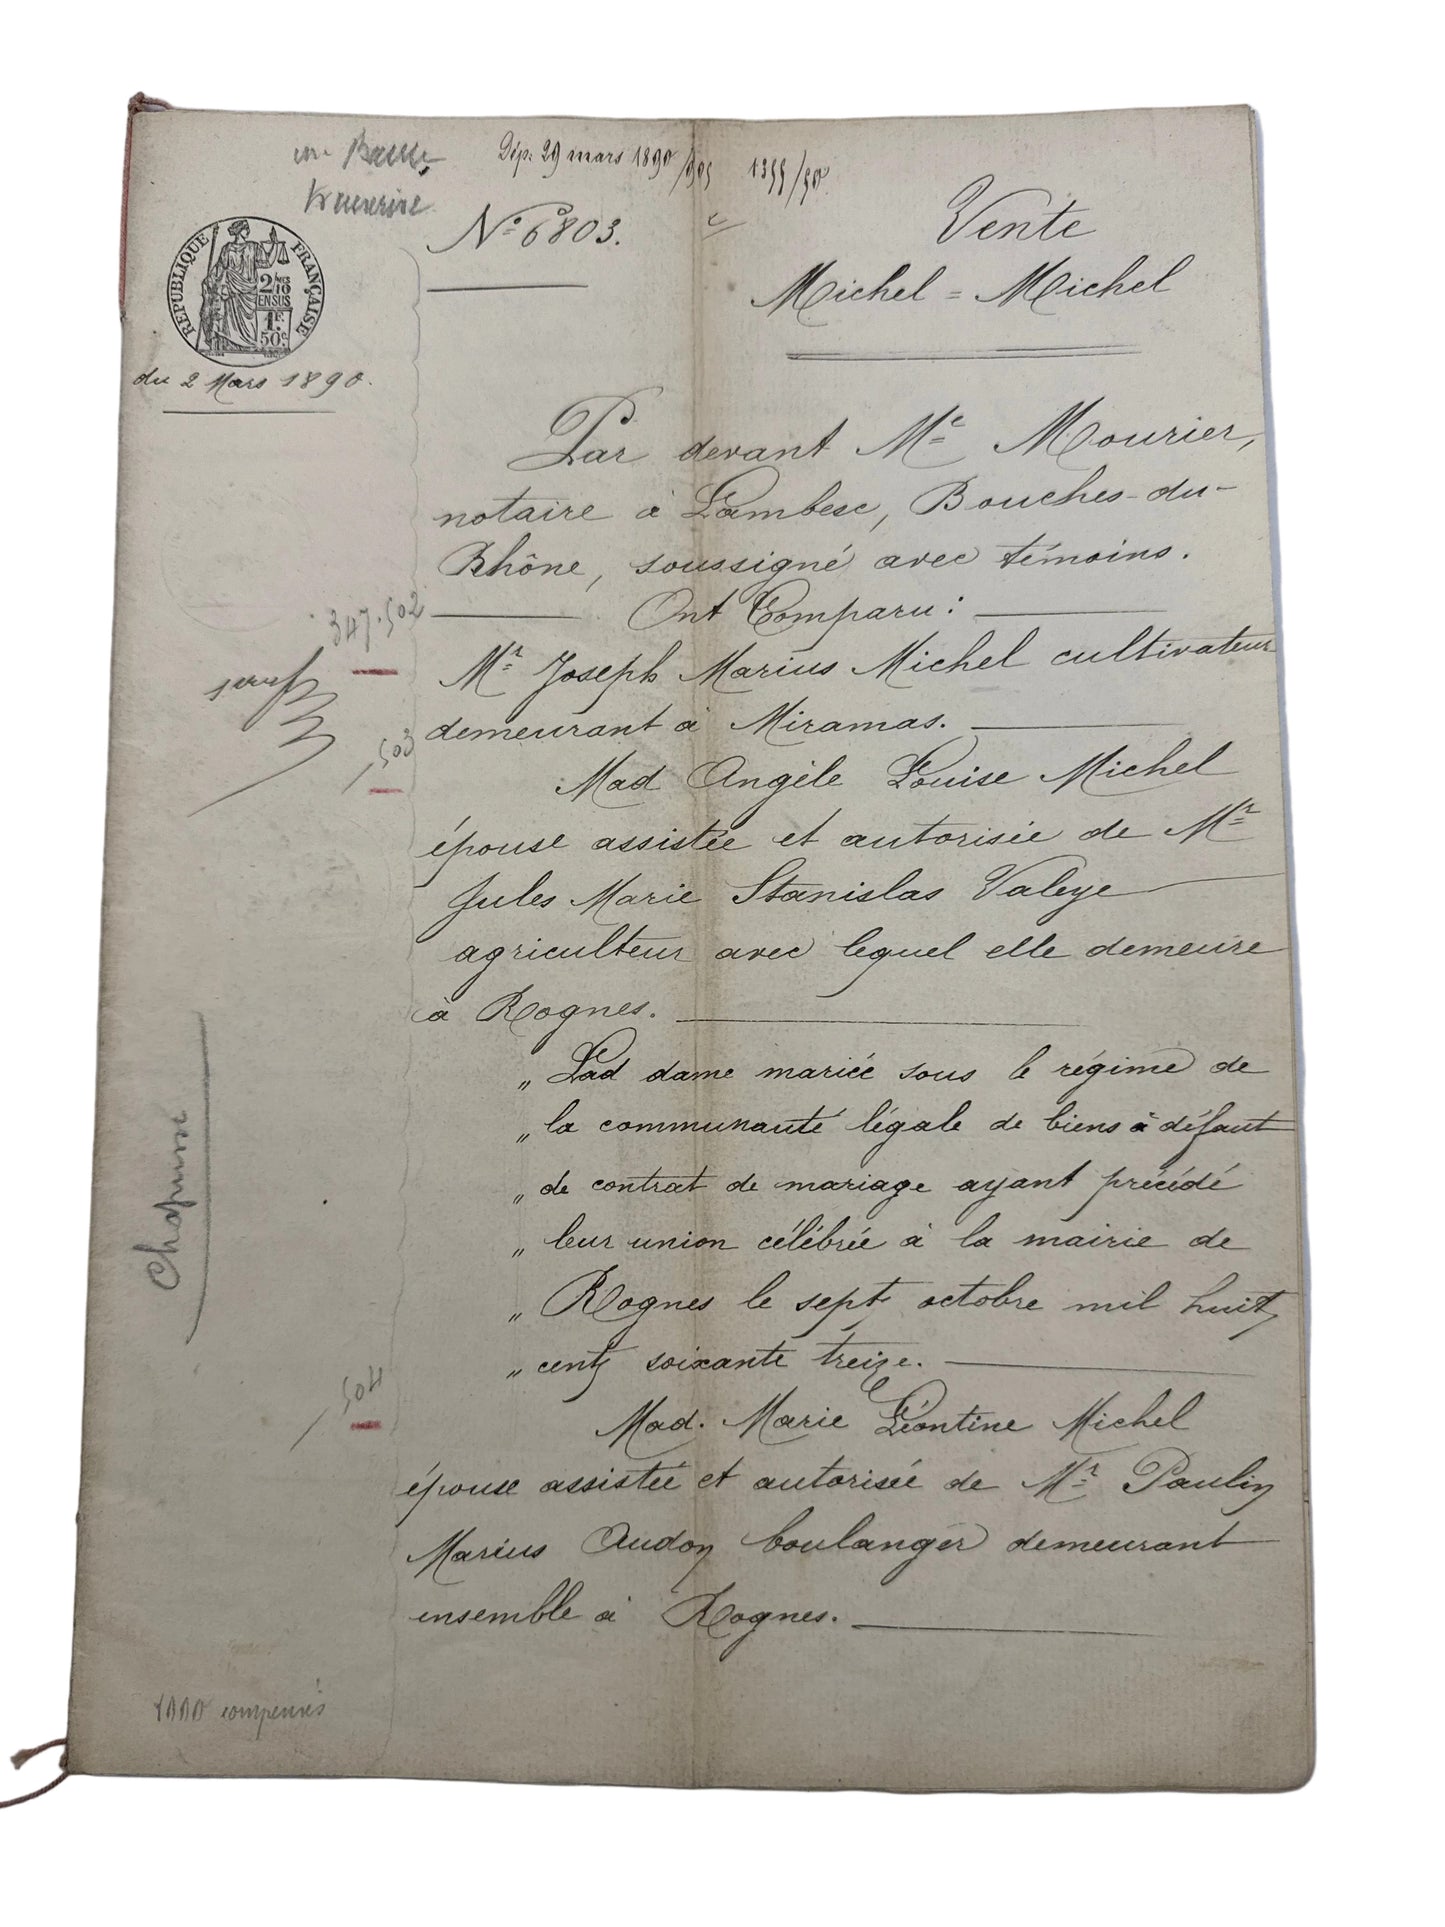 Dép. 29 mars 1890
Nº 6803.
Vente
Michel = Michel
RÉPUBLIQUE FRANÇAISE
2/10 EN SUS
1F.
50c.
du 2 Mars 1890.
Par devant Me Mourier,
notaire à Lambesc, Bouches-du-
Rhône, soussigné avec témoins.
Ont Comparu :
347.502
Mr Joseph Marius Michel cultivateur
demeurant à Miramas.
503
Mad Angèle Louise Michel
épouse assistée et autorisée de Mr
Jules Marie Stanislas Valeye
agriculteur avec lequel elle demeure
à Rognes.
" Lad dame mariée sous le régime de
" la communauté légale de biens à défaut
" de contrat de mariage ayant précédé
" leur union célébrée à la mairie de
" Rognes le sept octobre mil huit
" cent soixante treize.
504
Mad. Marie Léontine Michel
épouse assistée et autorisée de Mr Paulin
Marius Audon boulanger demeurant
ensemble à Rognes.